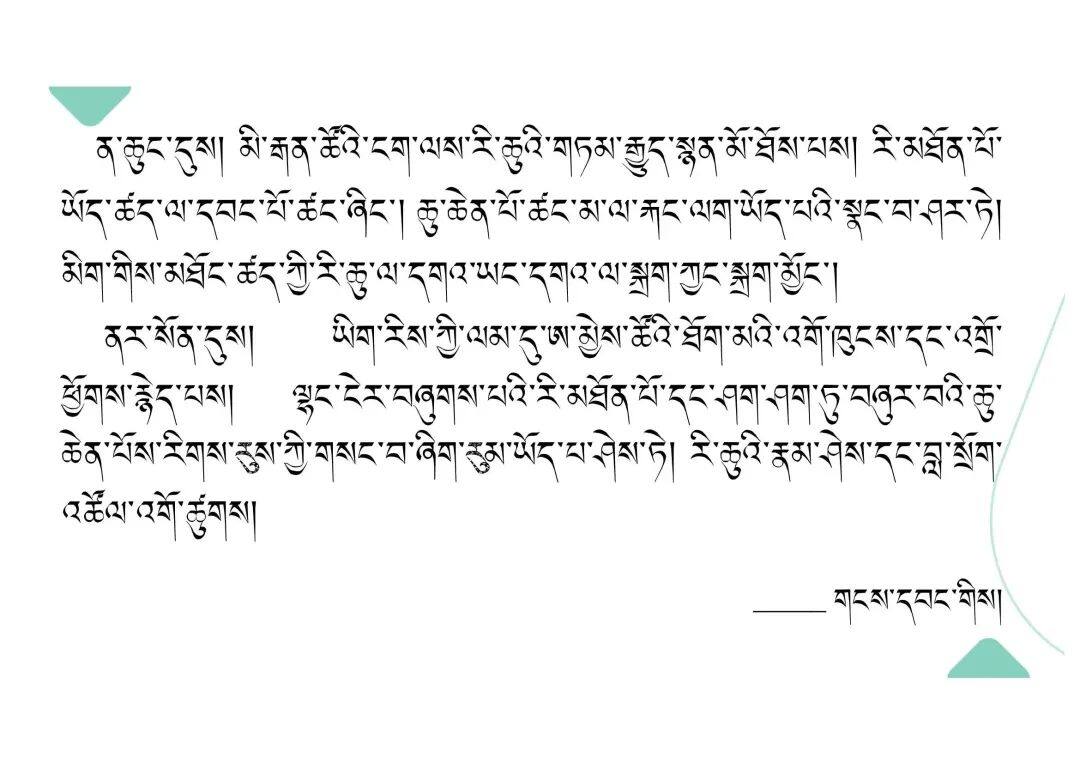 ན་ཆུང་དུས། མི་རྒན་ཚོའི་ངག་ལས་རི་ཆུའི་གཏམ་རྒྱུད་སྙན་མོ་ཐོས་པས། རི་མཐོན་པོ་
ཡོད་ཚད་ལ་དབང་པོ་ཚང་ཞིང་། ཆུ་ཆེན་པོ་ཚང་མ་ལ་རྐང་ལག་ཡོད་པའི་སྣང་བ་ཤར་ཏེ།
མིག་གིས་མཐོང་ཚད་ཀྱི་རི་ཆུ་ལ་དགའ་ཡང་དགའ་ལ་སྐྲག་ཀྱང་སྐྲག་མྱོང་།
ནར་སོན་དུས། ཡིག་རིས་ཀྱི་ལམ་དུ་ཨ་མྱེས་ཚོའི་ཐོག་མའི་འགོ་ཁུངས་དང་འགྲོ་
ཕྱོགས་རྙེད་པས། ལྷང་ངེར་བཞུགས་པའི་རི་མཐོན་པོ་དང་ཤག་ཤག་ཏུ་བཞུར་བའི་ཆུ་
ཆེན་པོས་རིགས་རུས་ཀྱི་གསང་བ་ཞིག་རུམ་ཡོད་པ་ཤེས་ཏེ། རི་ཆུའི་རྣམ་ཤེས་དང་བླ་སྲོག་
འཚོལ་འགོ་ཚུགས།
_____ གངས་དབང་གིས།